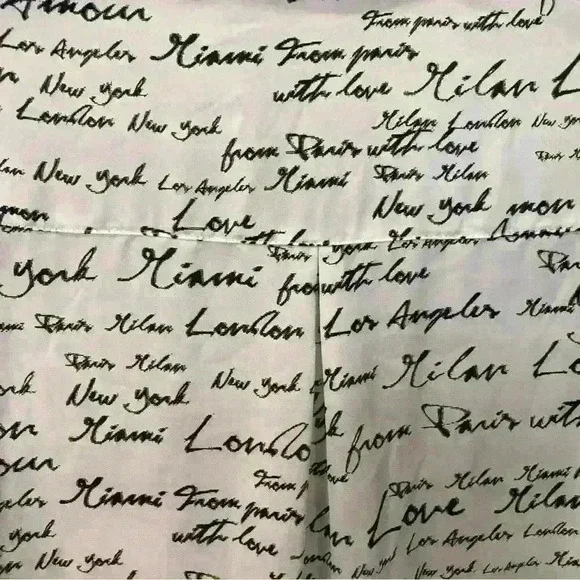 Amour From paris with love
Los Angeles Miami From paris
New york with love Milan L
London New york Milan London New yor
from Paris with love
New york Los Angeles Miami Paris Milan
Love New york mon
york Los Angeles
york Miami from with love
Paris Milan London Los Angeles Miami
Paris Milan
New york New york Miami Milan Lo
Miami London from Paris with
From p
Paris Milan Miami
Miami From paris Love Milan
with love Los Angeles London
york
New york New york Los Angeles Miami